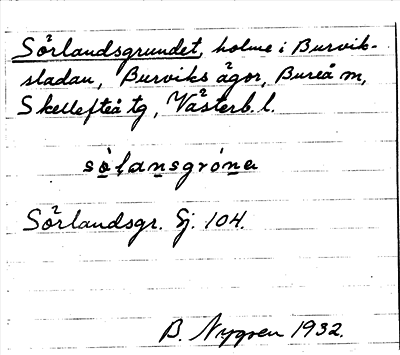 Sörlandsgrundet, holme i Burvik-
sladan, Burviks ägor, Bureå sn,
Skellefteå tg, Västerb. l.
sòlansgróne
Sörlandsgr. Gj. 104.
B. Nygren 1932.